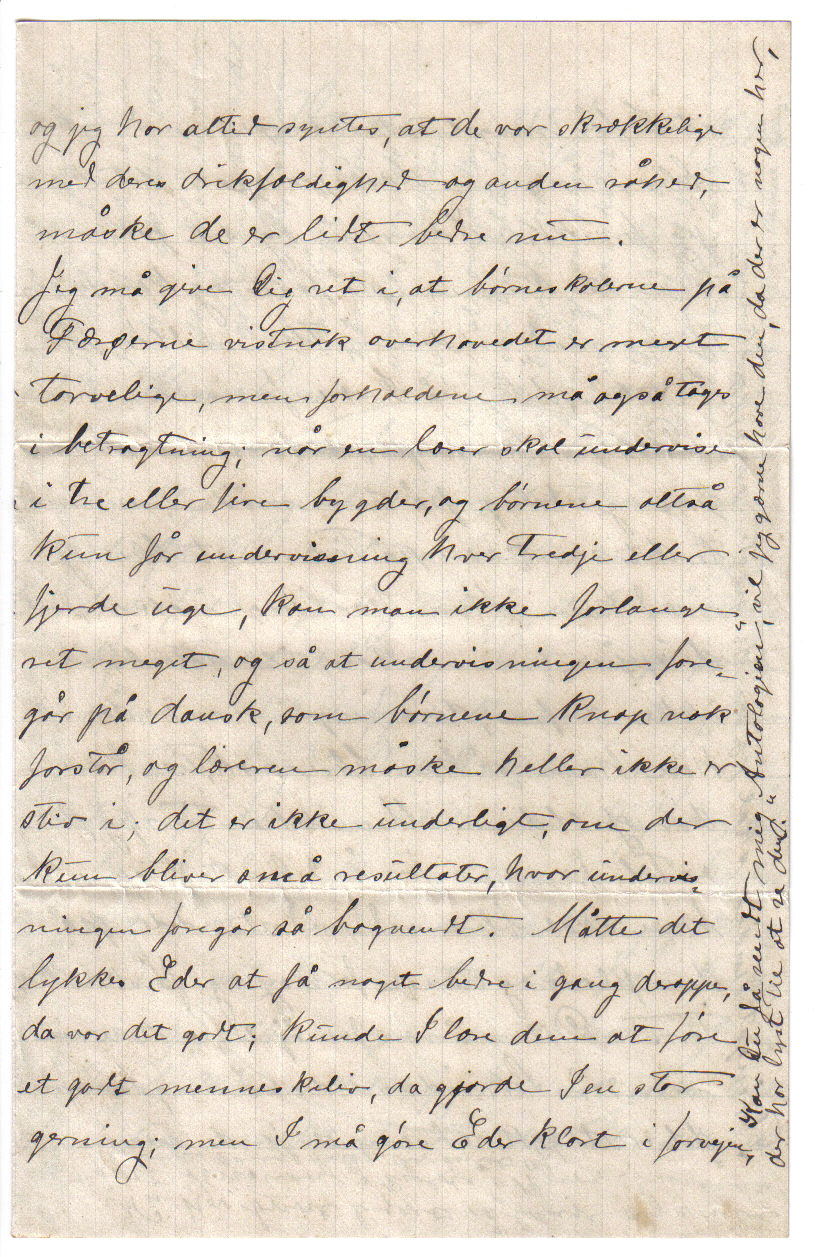 og jeg har altid syntes, at de var skrækkelige
med deres drikfældighed og anden råhed,
måske de er lidt bedre nu.
Jeg må give Dig ret i, at børneskolerne på
Færøerne vistnok overhovedet er meget
tarvelige, men forholdene må også tages
i betragtning; når en lærer skal undervise
i tre eller fire bygder, og børnene altså
kun får undervisning hver tredje eller
fjerde uge, kan man ikke forlange
ret meget, og så at undervisningen fore-
går på dansk, som børnene knap nok
forstår, og læreren måske heller ikke er
stiv i; det er ikke underligt, om der
kun bliver små resultater, hvor undervis-
ningen foregår så bagvendt. Måtte det
lykkes Eder at få noget bedre i gang deroppe,
da var det godt; kunde I lære dem at føre
et godt menneskeliv, da gjorde I en stor
gerning; men I må gøre Eder klart i forvejen,
Kan Du få sendt mig "Antologien", vil jeg gærne have den, da der er nogen her,
der har lyst til at se den.